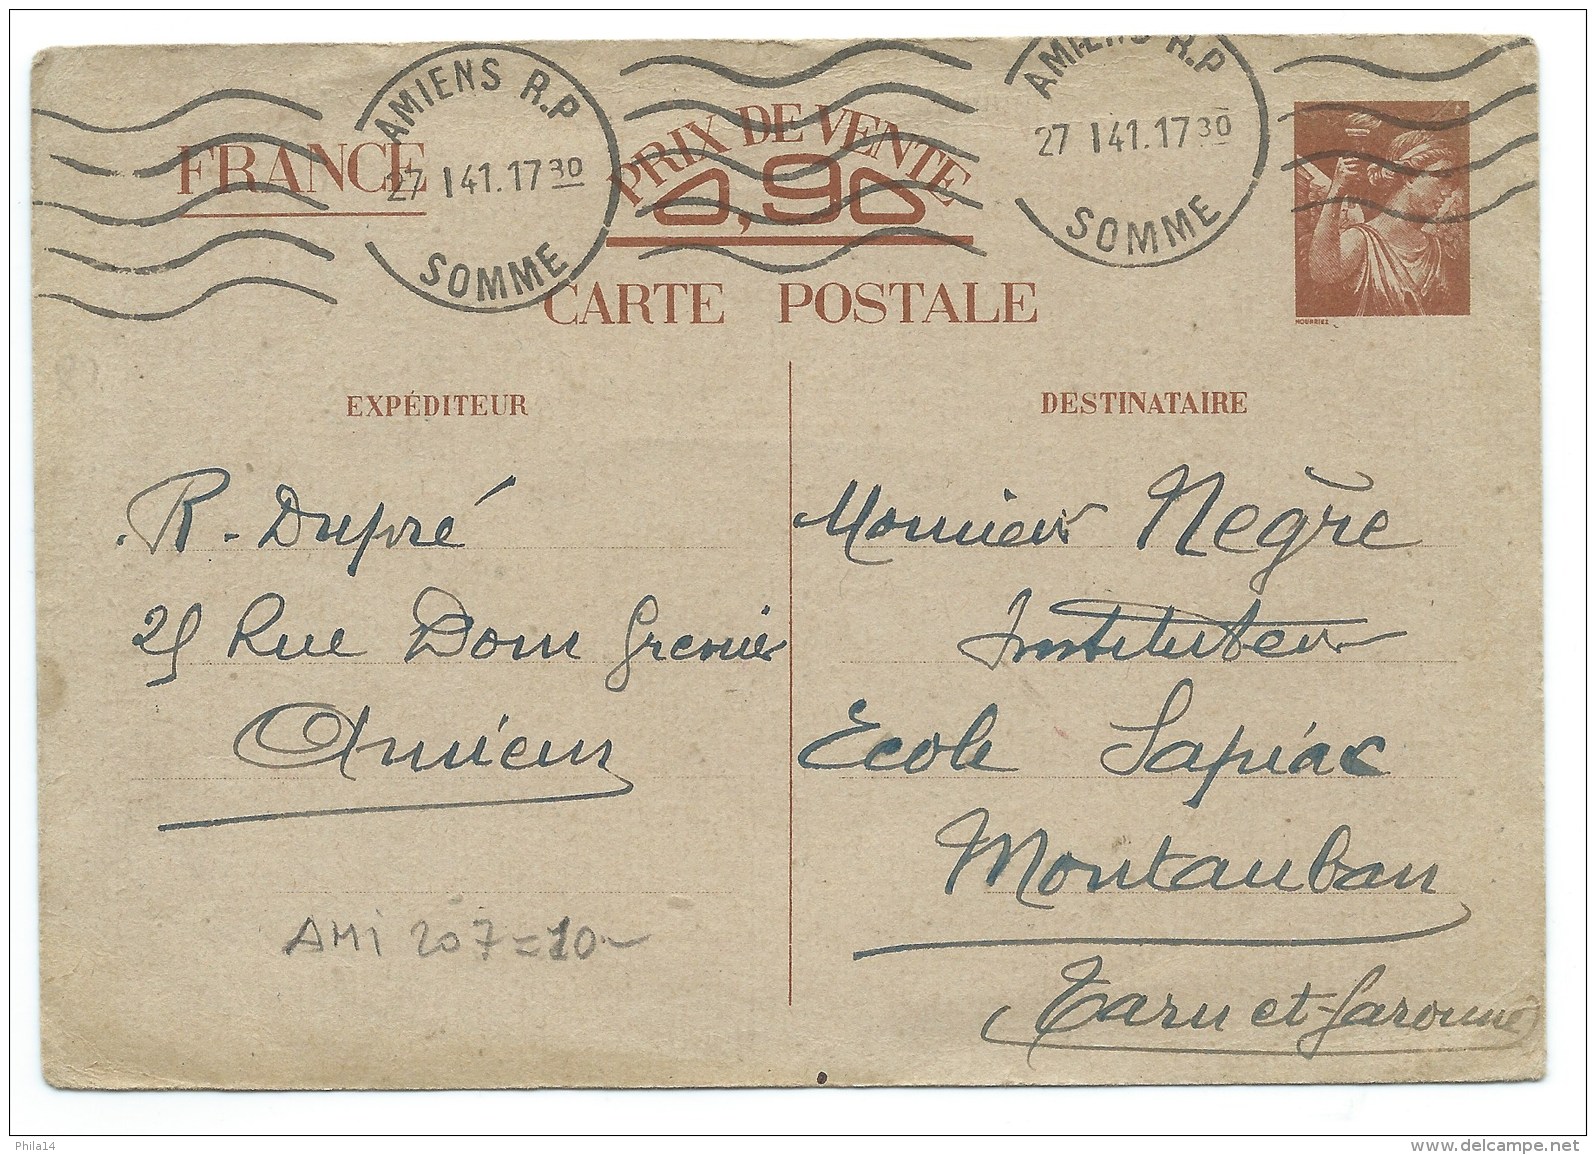 AMIENS R.P
27 I 41.17 30
SOMME
AMIENS R.P
27 I 41.17 30
SOMME
FRANCE
PRIX DE VENTE
0,90
CARTE POSTALE
HOURRIEZ
EXPÉDITEUR
R. Dupré
25 Rue Dom Grenier
Amiens
AMI 207=10-
DESTINATAIRE
Monsieur Nègre
Instituteur
Ecole Sapiac
Montauban
(Tarn et-Garonne)
Phila14
www.delcampe.net